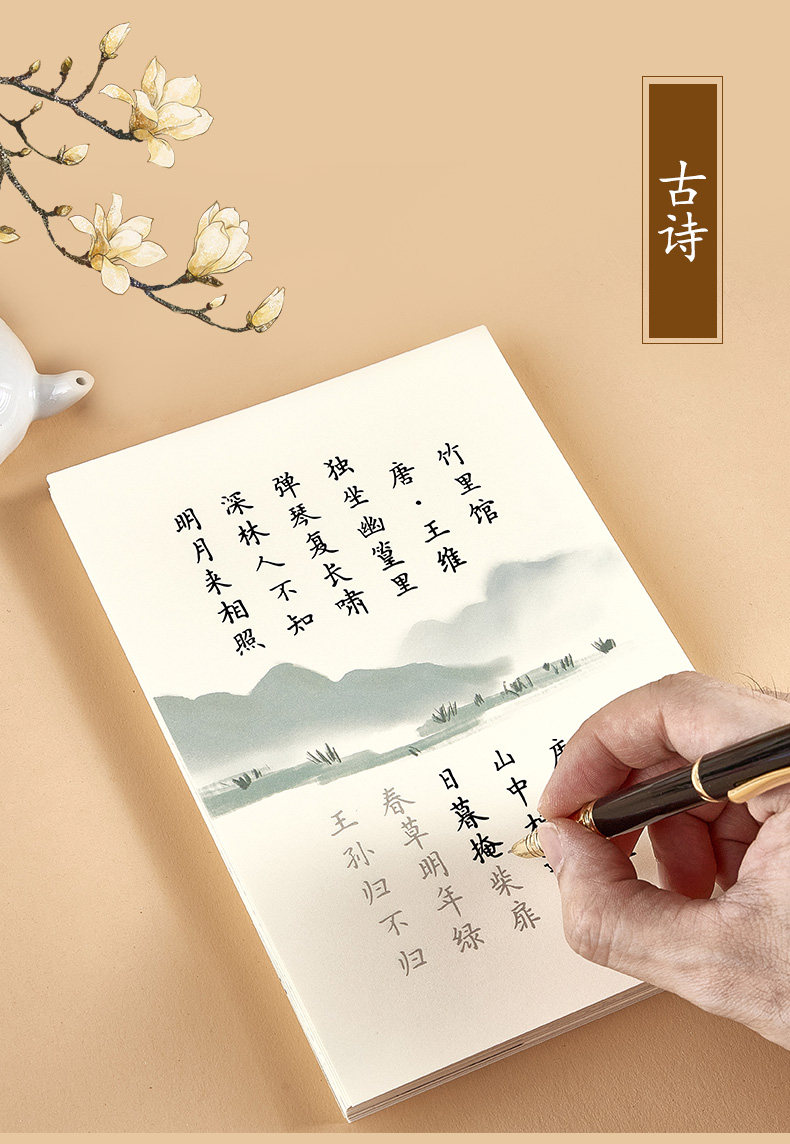 古诗
竹里馆
唐·王维
独坐幽篁里
弹琴复长啸
深林人不知
明月来相照
山中
日暮掩柴扉
春草明年绿
王孙归不归